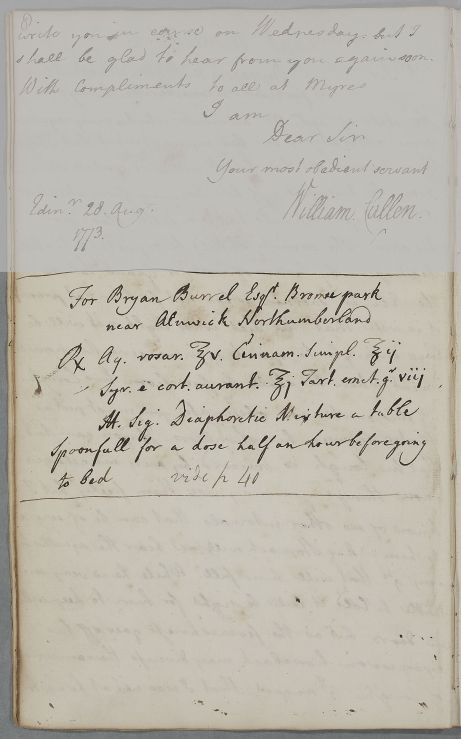 write you in course on Wednesday. but I
shall be glad to hear from you again soon.
With Compliments to all at Myres
I am
Dear Sir
Your most obedient servant
Edinr. 28. Aug.
William Cullen.
1773.
For Bryan Burrel Esqr. Bromepark
near Alnwick Northumberland
℞ Aq. rosar. ℥v. Cinnam. simpl. ℥ij
Syr. e cort. aurant. ℥j Tart. emet. gr viij
M. Sig. Diaphoretic Mixture a table
spoonfull for a dose half an hour before going
to bed vide p 40